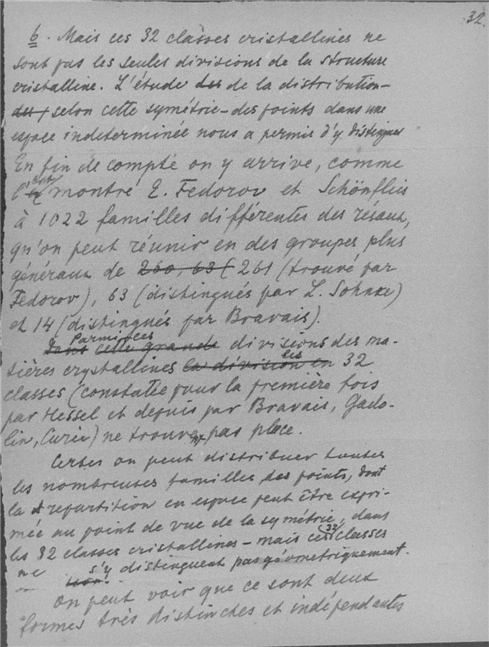 32.
6. Mais ces 32 classes cristallines ne
sont pas les seules divisions de la structure
cristalline. L'étude des de la distribution –
des selon cette symétrie – des points dans une
espace indeterminée nous a permis d'y distinguer
En fin de compte on y arrive, comme
l'ont montré E. Fedorov et Schönflies
à 1022 familles différentes des résaux,
qu'on peut réunir en des groupes plus
généraux de 260, 63 ( 261 (trouvé par
Fedorov), 63 (distingués par L. Sohnke)
et 14 (distingués par Bravais).
Parmi ces
Dans cette grande divisions des ma-
tières crystallines la division en les 32
classes (constatée pour la première fois
par Hessel et depuis par Bravais, Gado-
lin, Curie) ne trouve pas place.
Certes on peut distribuer toutes
les nombreuses familles des points, dont
la répartition en espace peut être expri-
mée au point de vue de la symétrie, dans
les 32 classes cristallines – mais ces 32 classes
ne s'y distinguent pas géometriquement.
On peut voir que ce sont deux
formes très distinctes et indépendantes